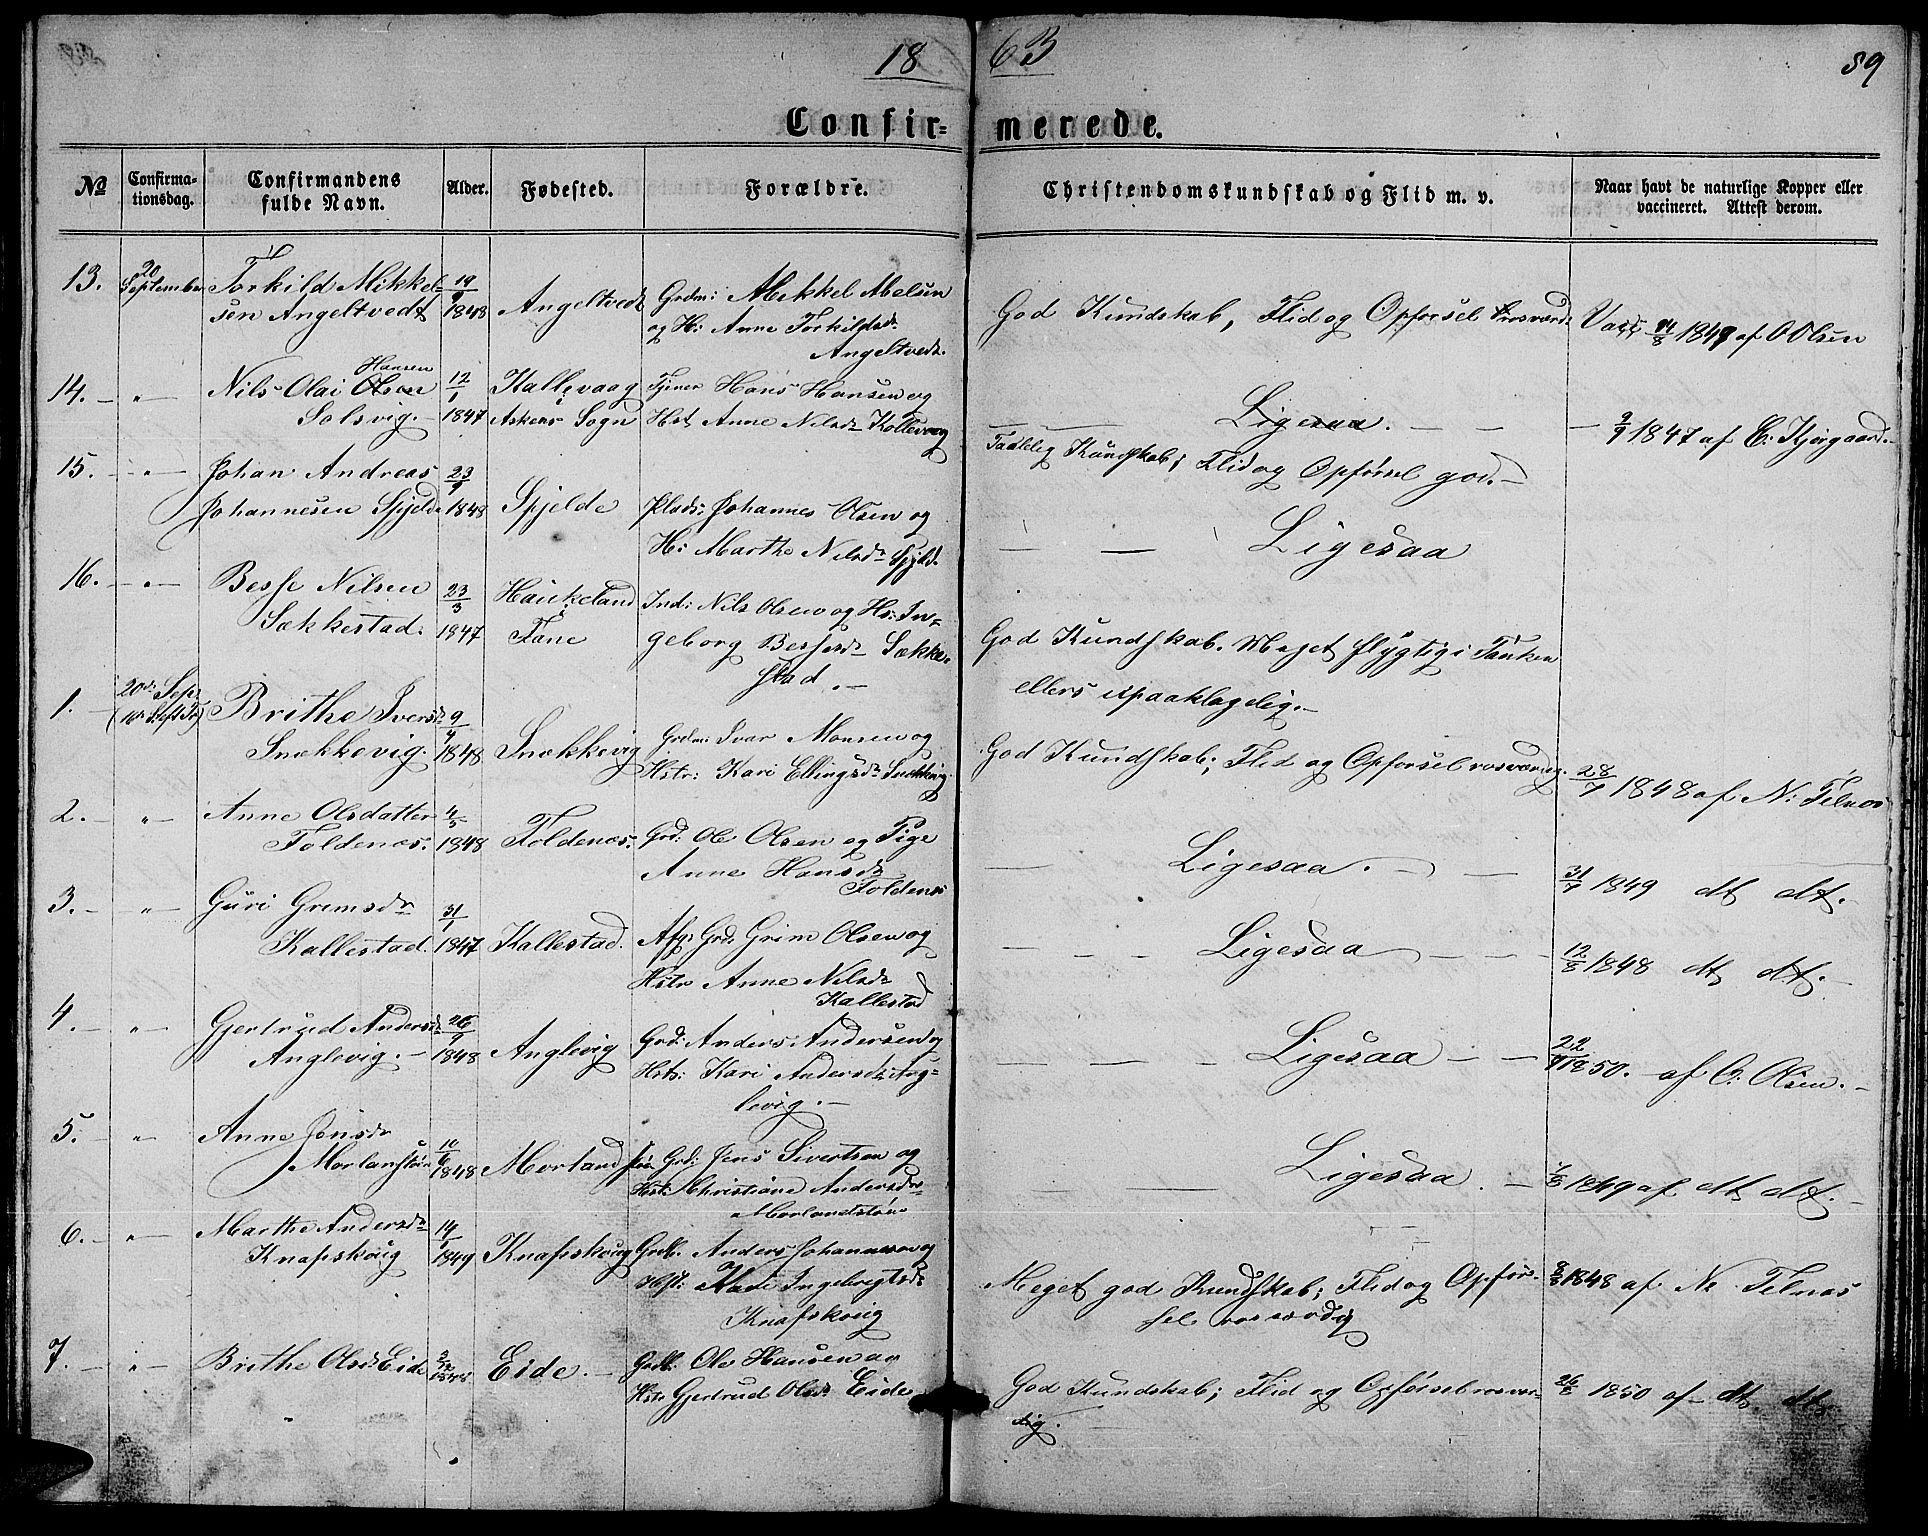 18 63 89
Confir- merede.
No
Confirma-
tionsdag.
Confirmandens
fulde Navn.
Alder.
Fødested.
Forældre.
Christendomskundskab og Flid m. v.
Naar havt de naturlige Kopper eller
vaccineret. Attest derom.
13. 20 September Torkild Mikkel-
sen Angeltvedt 19/9 1848 Angeltvedt
Grdm: Mikkel Melsen
og H: Anne Torkildsdr
Angeltvedt.
God Kundskab, Flid og Opførsel rosværd
Vacc 14/8 1849 af O Olsen
14. – " – Nils Olai Olsen Hansen
Solsvig. – 12/1 1847 Kallevaag
Askens Sogn
Tjener Hans Hansen og
Hst Anne Nilsdr Kollevaag
– – Ligesaa. – –
– 9/9 1847 af E. Kjergaard.
15. – " – Johan Andreas
Johannesen Spjelde 23/9 1848 Spjelde
Plads: Johannes Olsen og
H: Marthe Nilsdr Spjeld.
Taalelig Kundskab; Flid og Opførsel god. –
– – Ligesaa
16. – " – Besse Nilsen
Sækkestad. 23/3 1847 Haukeland
i Fane
Ind: Nils Olsen og Hs: In-
geborg Bessesdr Sække-
stad. –
God Kundskab. Meget flygtig i Tanken
ellers upaaklagelig. –
1. – 20de Sep:
Brithe Iversdr
Snekkevig. 9/4 1848 Snekkevig
Grdm: Ivar Monsen og
Hstr: Kari Ellingsdr Snekkevig.
God Kundskab; Flid og Opførsel rosværdig.
28/7 1848 af N: Telnæs
2. – " – Anne Olsdatter
Toldenæs. 4/5 1848 Toldenæs.
Grd: Ole Olsen og Pige
Anne Hansdr
Toldenæs
– Ligesaa. – –
31/7 1849 dt dt. –
3. – " – Guri Gremsdr
Kallestad. 31/1 1847 Kallestad.
Afg. Grd. Grim Olsen og
Hstr Anne Nilsdr
Kallestad
– – – Ligesaa – – –
12/8 1848 dt dt. –
4. – " – Gjertrud Andersdr
Anglevig. – 26/9 1848 Anglevig
Grd: Anders Andersen og
Hstr: Kari Andersdr Ang-
levig. –
– – – Ligesaa – –
22/9 1850. – af O: Olsen. –
5. – " – Anne Jensdr
Morlandstøen 10/6 1848 Morlandstøen
Grd: Jens Sivertsen og
Hstr: Christiane Andersdr
Morlandstøen
– – Ligesaa. –
1849 af dt dt. –
6. – " – Marthe Andersdr
Knapskoug 14/1 1849 Knapskoug
Grdb. Anders Johannesen og
Hst: Kari Ingebrigtsdr
Knapskoug
Meget god Kundskab; Flid og Opfør-
sel rosværdig
8/8 1848 af N: Telnæs
7. – " – Brithe Olsdr Eide 1848 Eide. –
Grdb. Ole Hansen og
Hstr Gjertrud Olsdr Eide
God Kundskab; Flid og Opførsel rosvær-
dig. –
26/8 1850 af dt. dt.